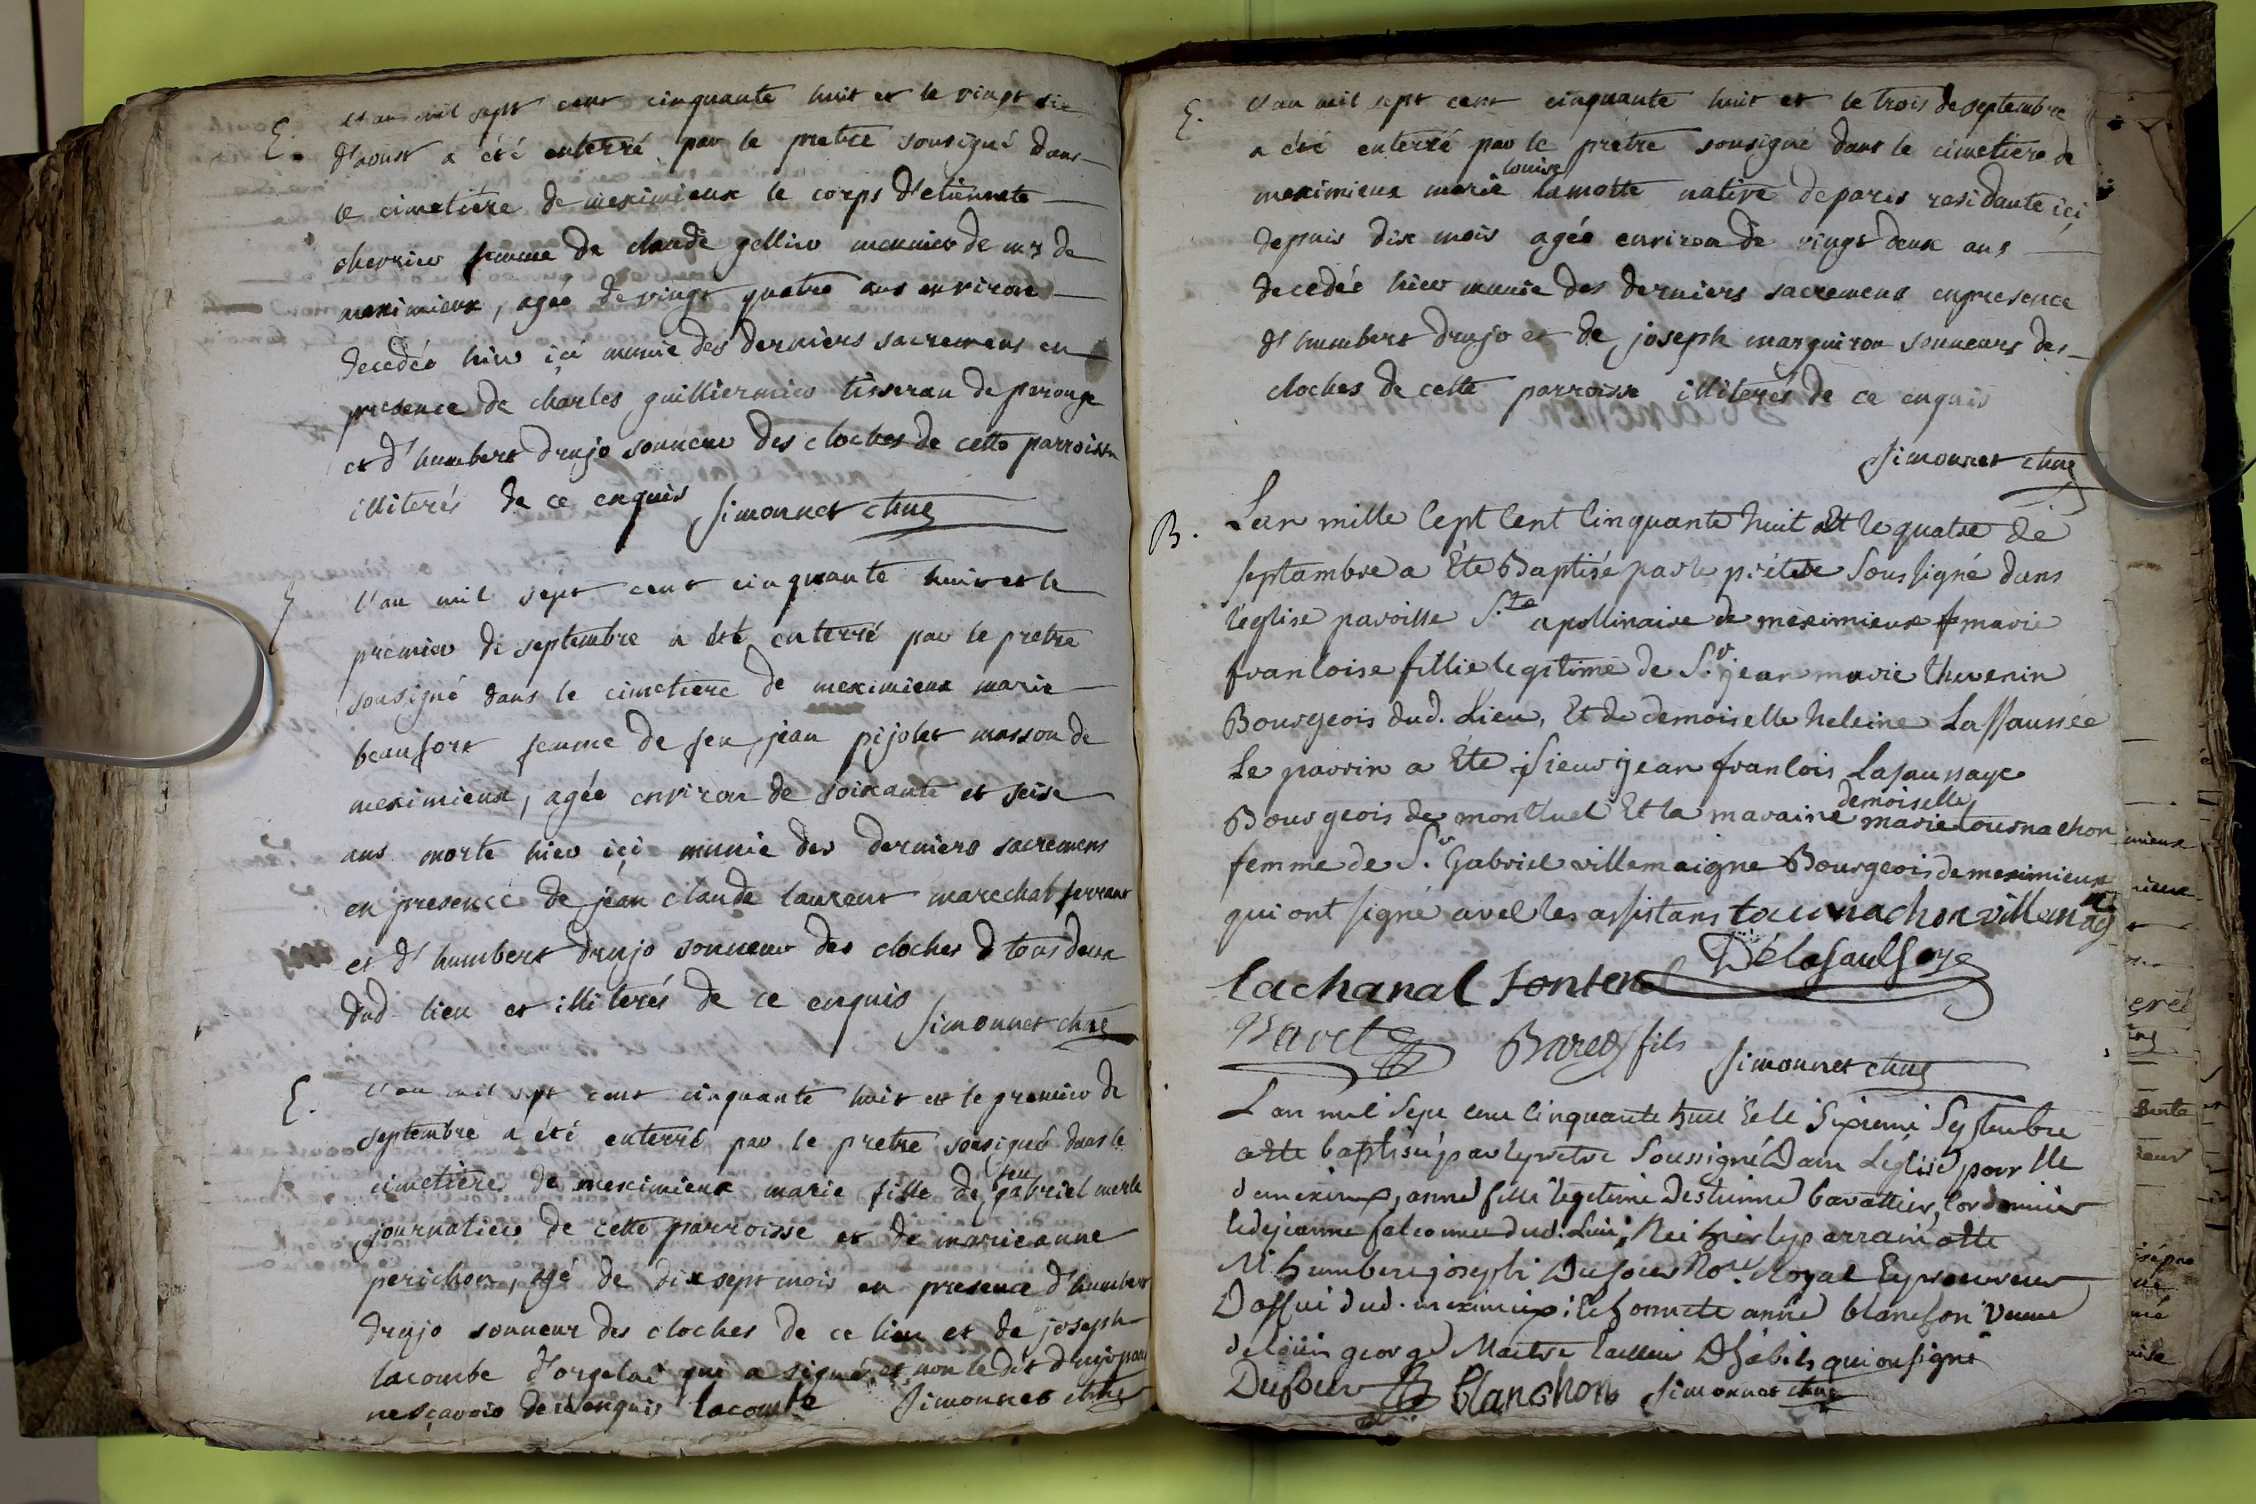 l'an mil sept cent cinquante huit et le vingt six
E. d'aoust a été enterré par le pretre sousigné dans
le cimetière de meximieux le corps d'etiennete
chevrier femme de claude gellin meunier de mr de
meximieux, agée de vingt quatre ans environ
decedée hier ici munie des derniers sacremens en
presence de charles guilliermier tisseran de perouge
et d'humbert drujo sonneur des cloches de cette parroisse
illiterés de ce enquis Simonnet
E l'an mil sept cent cinquante huit et le
premier de septembre a été enterré par le pretre
sousigné dans le cimetiere de meximieux marie
beaufort femme de feu jean pijolet masson de
meximieux, agée environ de soixante et seise
ans morte hier ici munie des derniers sacremens
en presence de jean claude laurent marechal ferrant
et d'humbert drujo sonneur des cloches tous deux
dud. lieu et illiterés de ce enquis
Simonnet
E. l'an mil sept cent cinquante huit et le premier de
septembre a été enterré par le pretre sousigné dans le
cimetiere de meximieux marie fille de feu gabriel merle
journalier de cette parroisse et de marieanne
perichon, agé de dix sept mois en presence d'humbert
drujo sonneur des cloches de ce lieu et de joseph
lacombe d'orgelai qui a signé et non le dit drujo pour
ne sçavoir de ce enquis lacombe Simonnet
E. l'an mil sept cent cinquante huit et le trois de septembre
a été enterré par le prètre sousigné dans le cimetiere de
meximieux marie louise lamotte native de paris residante ici
depuis dix mois agée environ de vingt deux ans
decedée hier munie des derniers sacremens en presence
d'humbert drujo et de joseph marguiron sonneurs des
cloches de cette parroisse illiterés de ce enquis
Simonnet
B. Lan mille sept cent cinquante huit Et le quatre de
septambre a Eté Baptisé par le prêtre soussigné dans
leglise paroisse S.te apollinaire de meximieux marie
francoise fillie legitime de S.r jean marie thevenin
Bourgeois dud. Lieu, Et de demoiselle heleine Lassaussée
Le parrin a Eté sieur jean francois Lasaussaye
Bourgeois de montluel Et la maraine demoiselle marie tournachon
femme de S.r Gabriel villemaigne Bourgeois de meximieux
qui ont signé avec les assistans tournachon villemag
Délasaulsaye
Lachanal
Bavet Bavet fils Simonnet
L'an mil sept cent cinquante huit Et le sixieme Septembre
a ette baptisée par le pretre soussigné Dans L'église parr.lle
de meximieux, anne fille legitime destienne Cordonnier
et de jeanne falconnet dud. Lieu, Née hier le parrain a ette
M.r humbert joseph Dufour No.re Royal Et procureur
D'office dud. meximieux Et honnete anne blanchon veuve
de george Maitre tailleur D'habits qui on signé
Dufour blanchon Simonnet